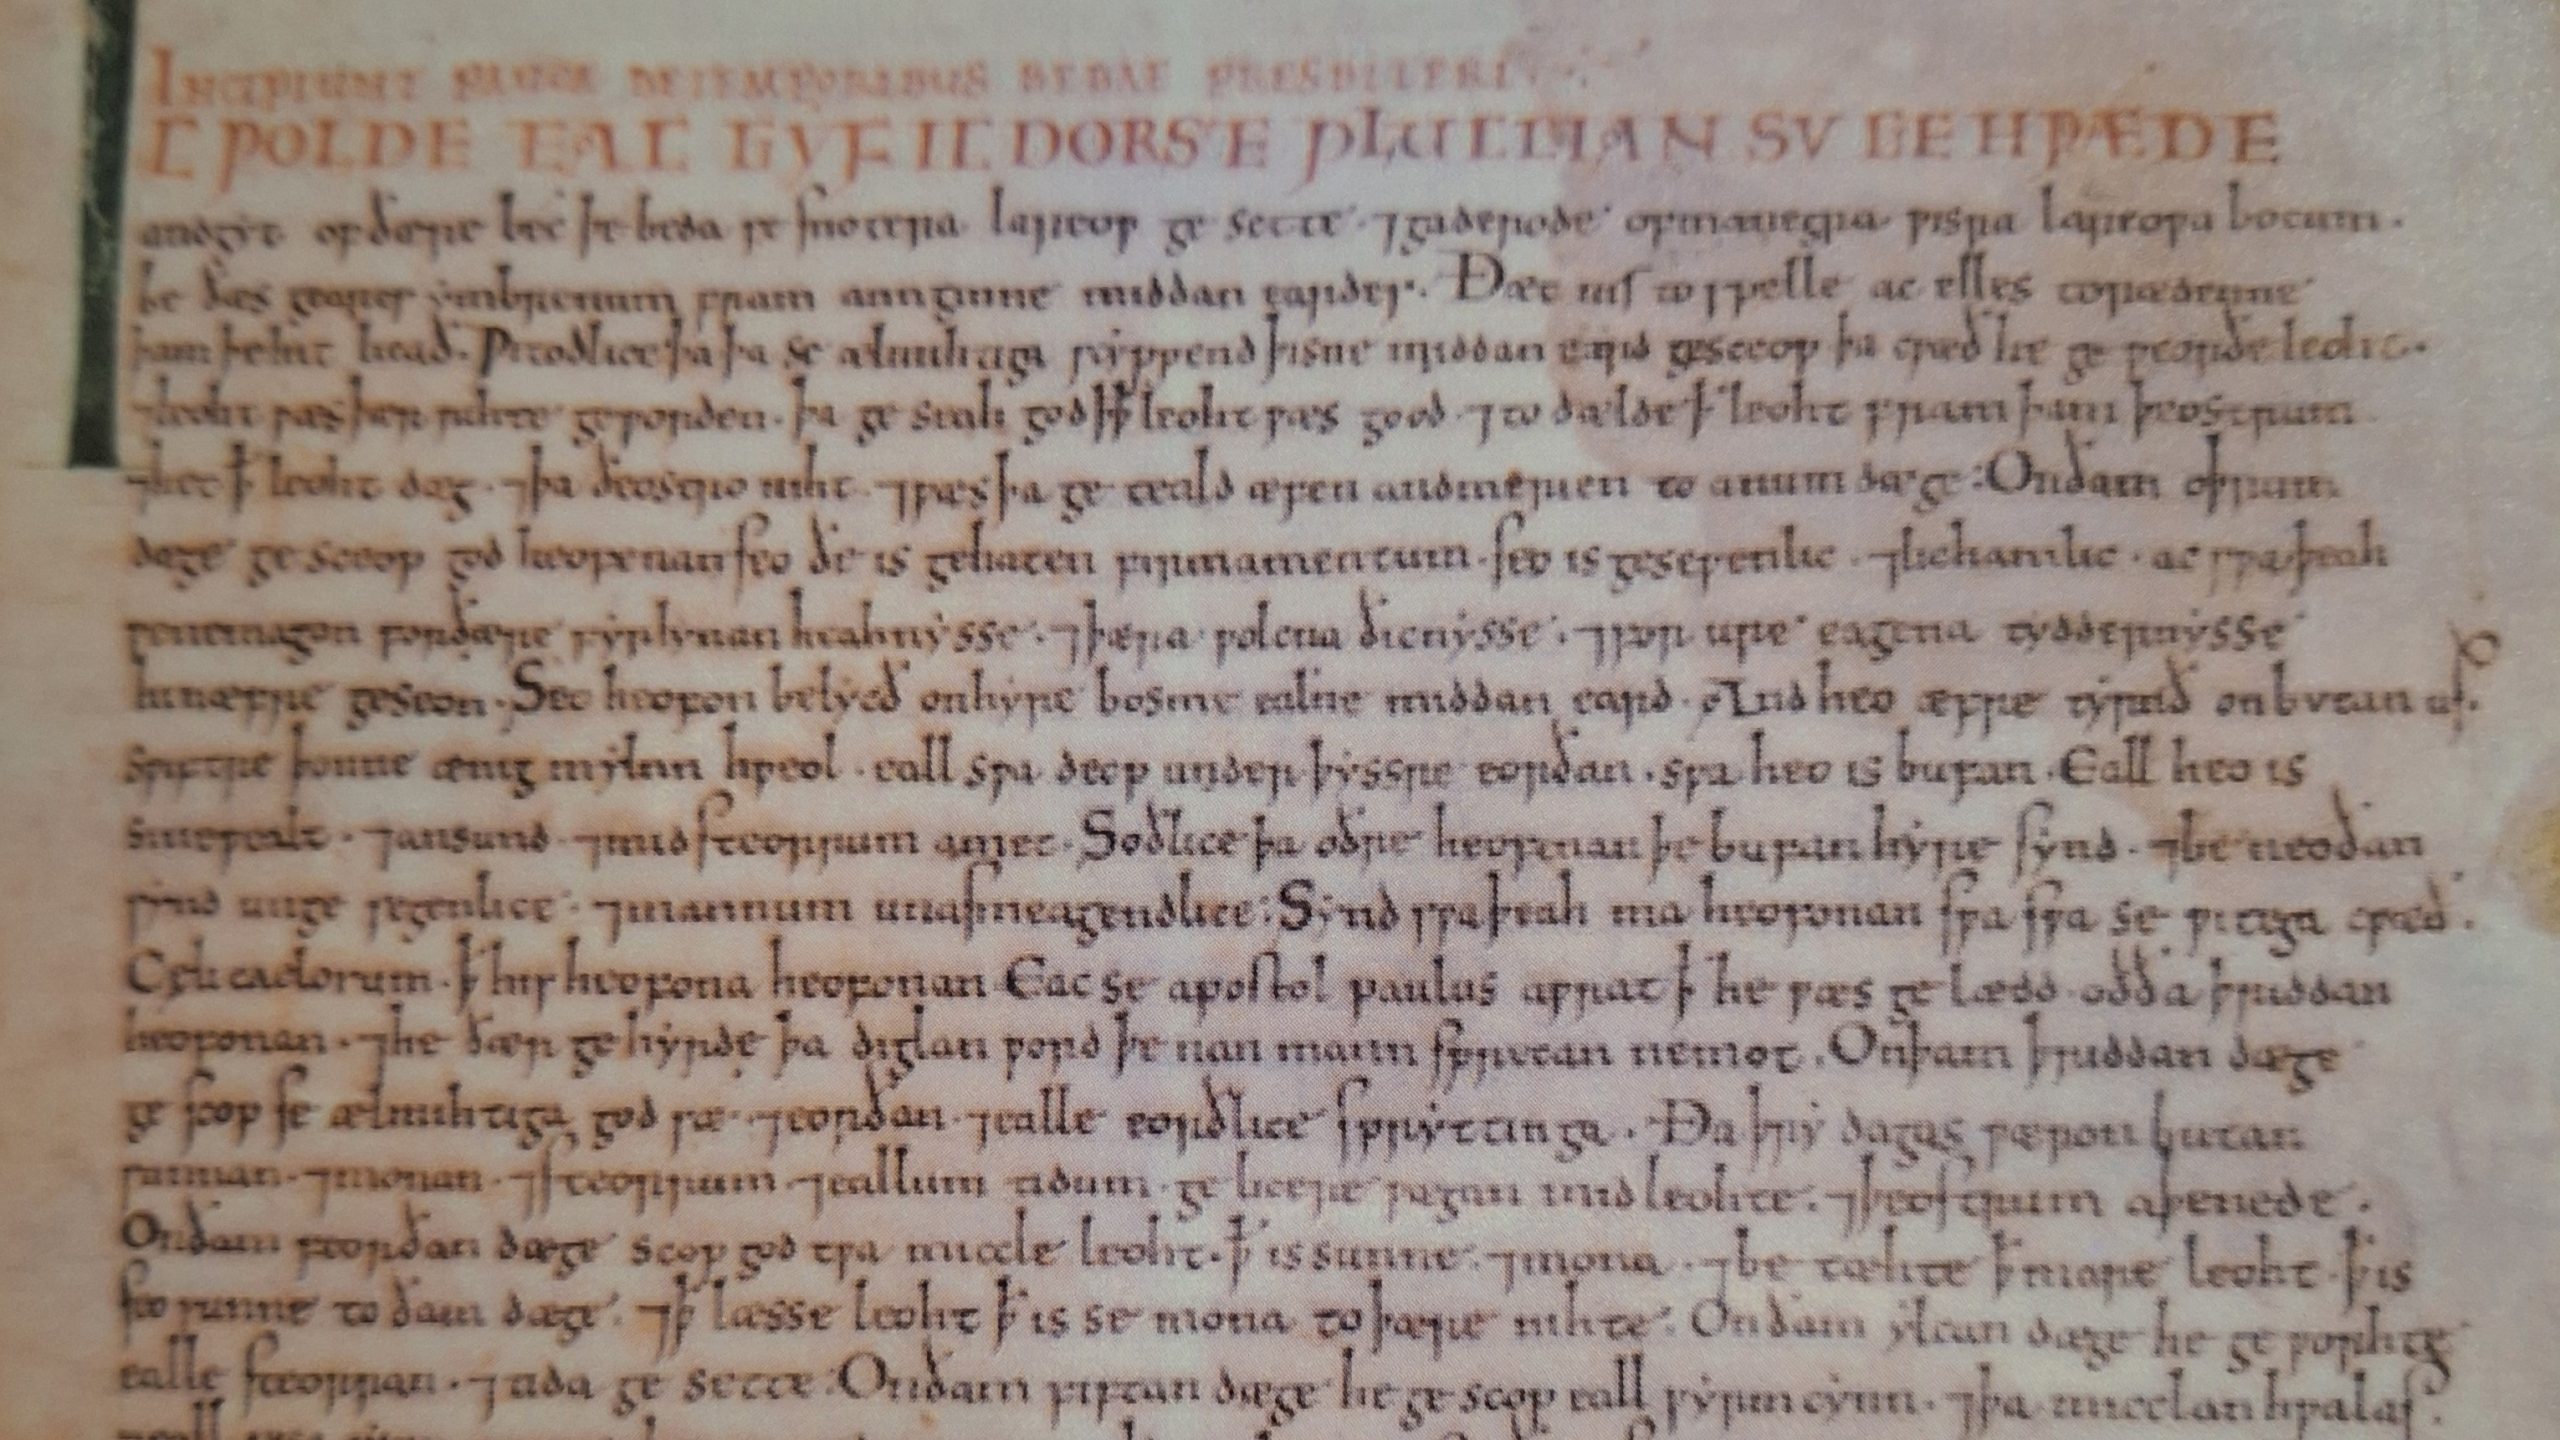 INCIPIUNT PAUCA DE TEMPORIBUS BEDAE PRESBITERI
IC ǷOLDE EAC GYF IC DORSTE PLUCCIAN SV GEHǷÆDE
andgyt of ðære bec þe beda se snotera lareoƿ ge sette · ⁊ gaderode of manegra ƿisra lareoƿa bocum ·
be ðæs geares ymbrenum fram annginne middan eardes · Ðæt nis to spelle ac elles to rædenne
þam þe hit licað · Ƿitodlice þa þa se ælmihtiga scyppend þisne middan eard gesceop þa cƿæð he ge ƿeorðe leoht ·
⁊ leoht ƿæs þær rihte geƿorden · þa ge seah god ꝥ ꝥ leoht ƿæs good · ⁊ to dælde ꝥ leoht fram þam þeostrum
⁊ het ꝥ leoht dæg · ⁊ þa ðeostru niht · ⁊ ƿæs þa ge teald æfen and merien to anum dæge : On ðam oþrum
dæge ge sceop god heofenan seo ðe is gehaten firmamentum · seo is geseƿenlic · ⁊ lichamlic · ac sƿa þeah
ƿe ne magon for ðære fyrlynan heahnysse · ⁊ þæra ƿolcna ðicnysse · ⁊ for ure eagena tyddernysse
hi næfre geseon · Seo heofon belycð on hyre bosme ealne middan eard · And heo æfre tyrnð onbutan us ·
sƿiftre þonne ænig mylnn hƿeol · eall sƿa deop under þyssre eorðan · sƿa heo is bufan · Eall heo is
sineƿealt · ⁊ ansund · ⁊ mid steorrum amet · Soðlice þa oðre heofenan þe bufan hyre synd · ⁊ be neoðan
synd unge segenlice · ⁊ mannum unasmeagendlice : Synd sƿa þeah ma heofonan sƿa sƿa se ƿitiga cƿæð ·
Celi caelorum · ꝥ his heofona heofonan Eac se apostol paulus aƿrat ꝥ he ƿæs ge lædd oðð a þriddan
heofonan · ⁊ he ðær ge hyrde þa diglan ƿord þe nan mann sprecan ne mot · On þam þriddan dæge
ge scop se ælmihtiga god sæ · ⁊ eorðan · ⁊ ealle eorðlice sprytinga · Ða þry dagas ƿæron butan
sunnan · ⁊ monan · ⁊ steorrum ⁊ eallum tidum · ge licere ƿagan mid leohte · ⁊ þeostrum aþenede ·
On ðam feorðan dæge scop god tƿa miccle leoht · ꝥ is sunne · ⁊ mona · ⁊ be tæhte ꝥ mare leoht · ꝥ is
seo sunne to ðam dæge · ⁊ ꝥ læsse leoht ꝥ is se mona to þære nihte · On ðam ylcan dæge he ge ƿorhte
ealle steorran · ⁊ tida ge sette : On ðam fiftan dæge he ge scop eall ƿyrm cynn · ⁊ þa micclan hƿalas ·